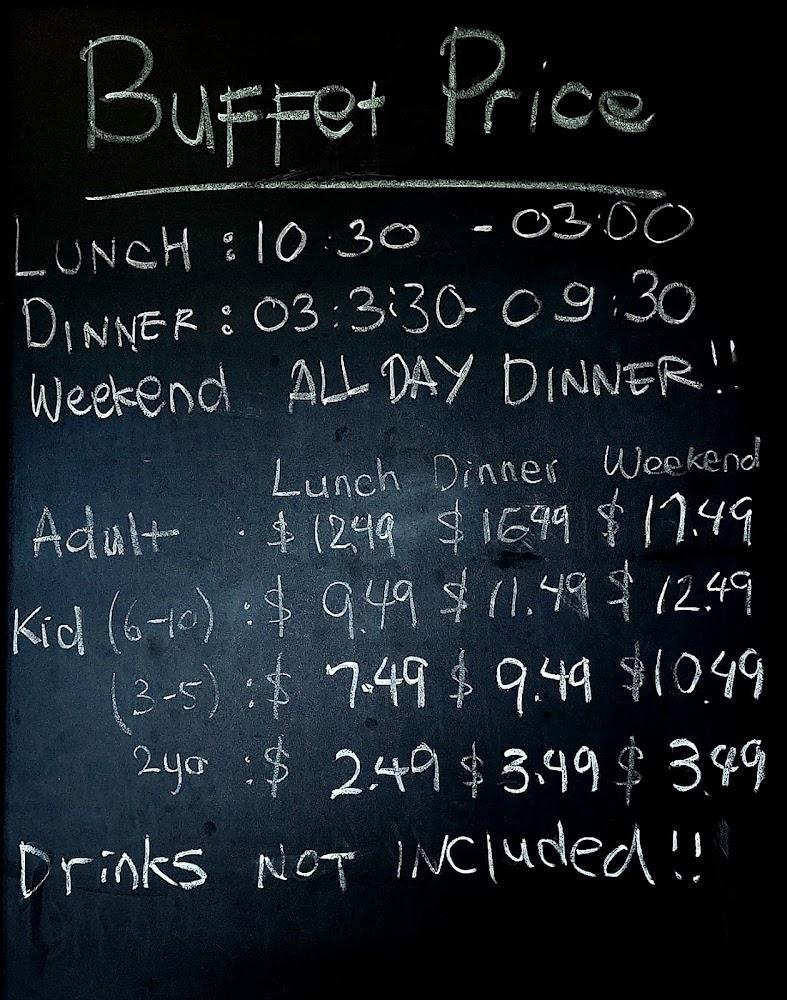 Buffet Price
LUNCH : 10:30 - 03:00
DINNER : 03:3:30- 09:30
Weekend ALL DAY DINNER!!
Lunch Dinner Weekend
Adult : $ 12.49 $ 16.99 $ 17.49
Kid (6-10) : $ 9.49 $ 11.49 $ 12.49
(3-5) : $ 7.49 $ 9.49 $10.49
2yo : $ 2.49 $ 3.49 $ 3.49
Drinks NOT INCluded!!